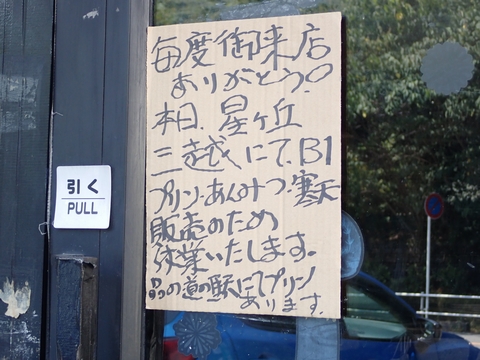 毎度御来店
ありがとう。
本日、星ヶ丘
三越にて、B1
プリン・あんみつ・寒天
販売のため
休業いたします。
の道の駅にてプリン
あります。
引く
PULL